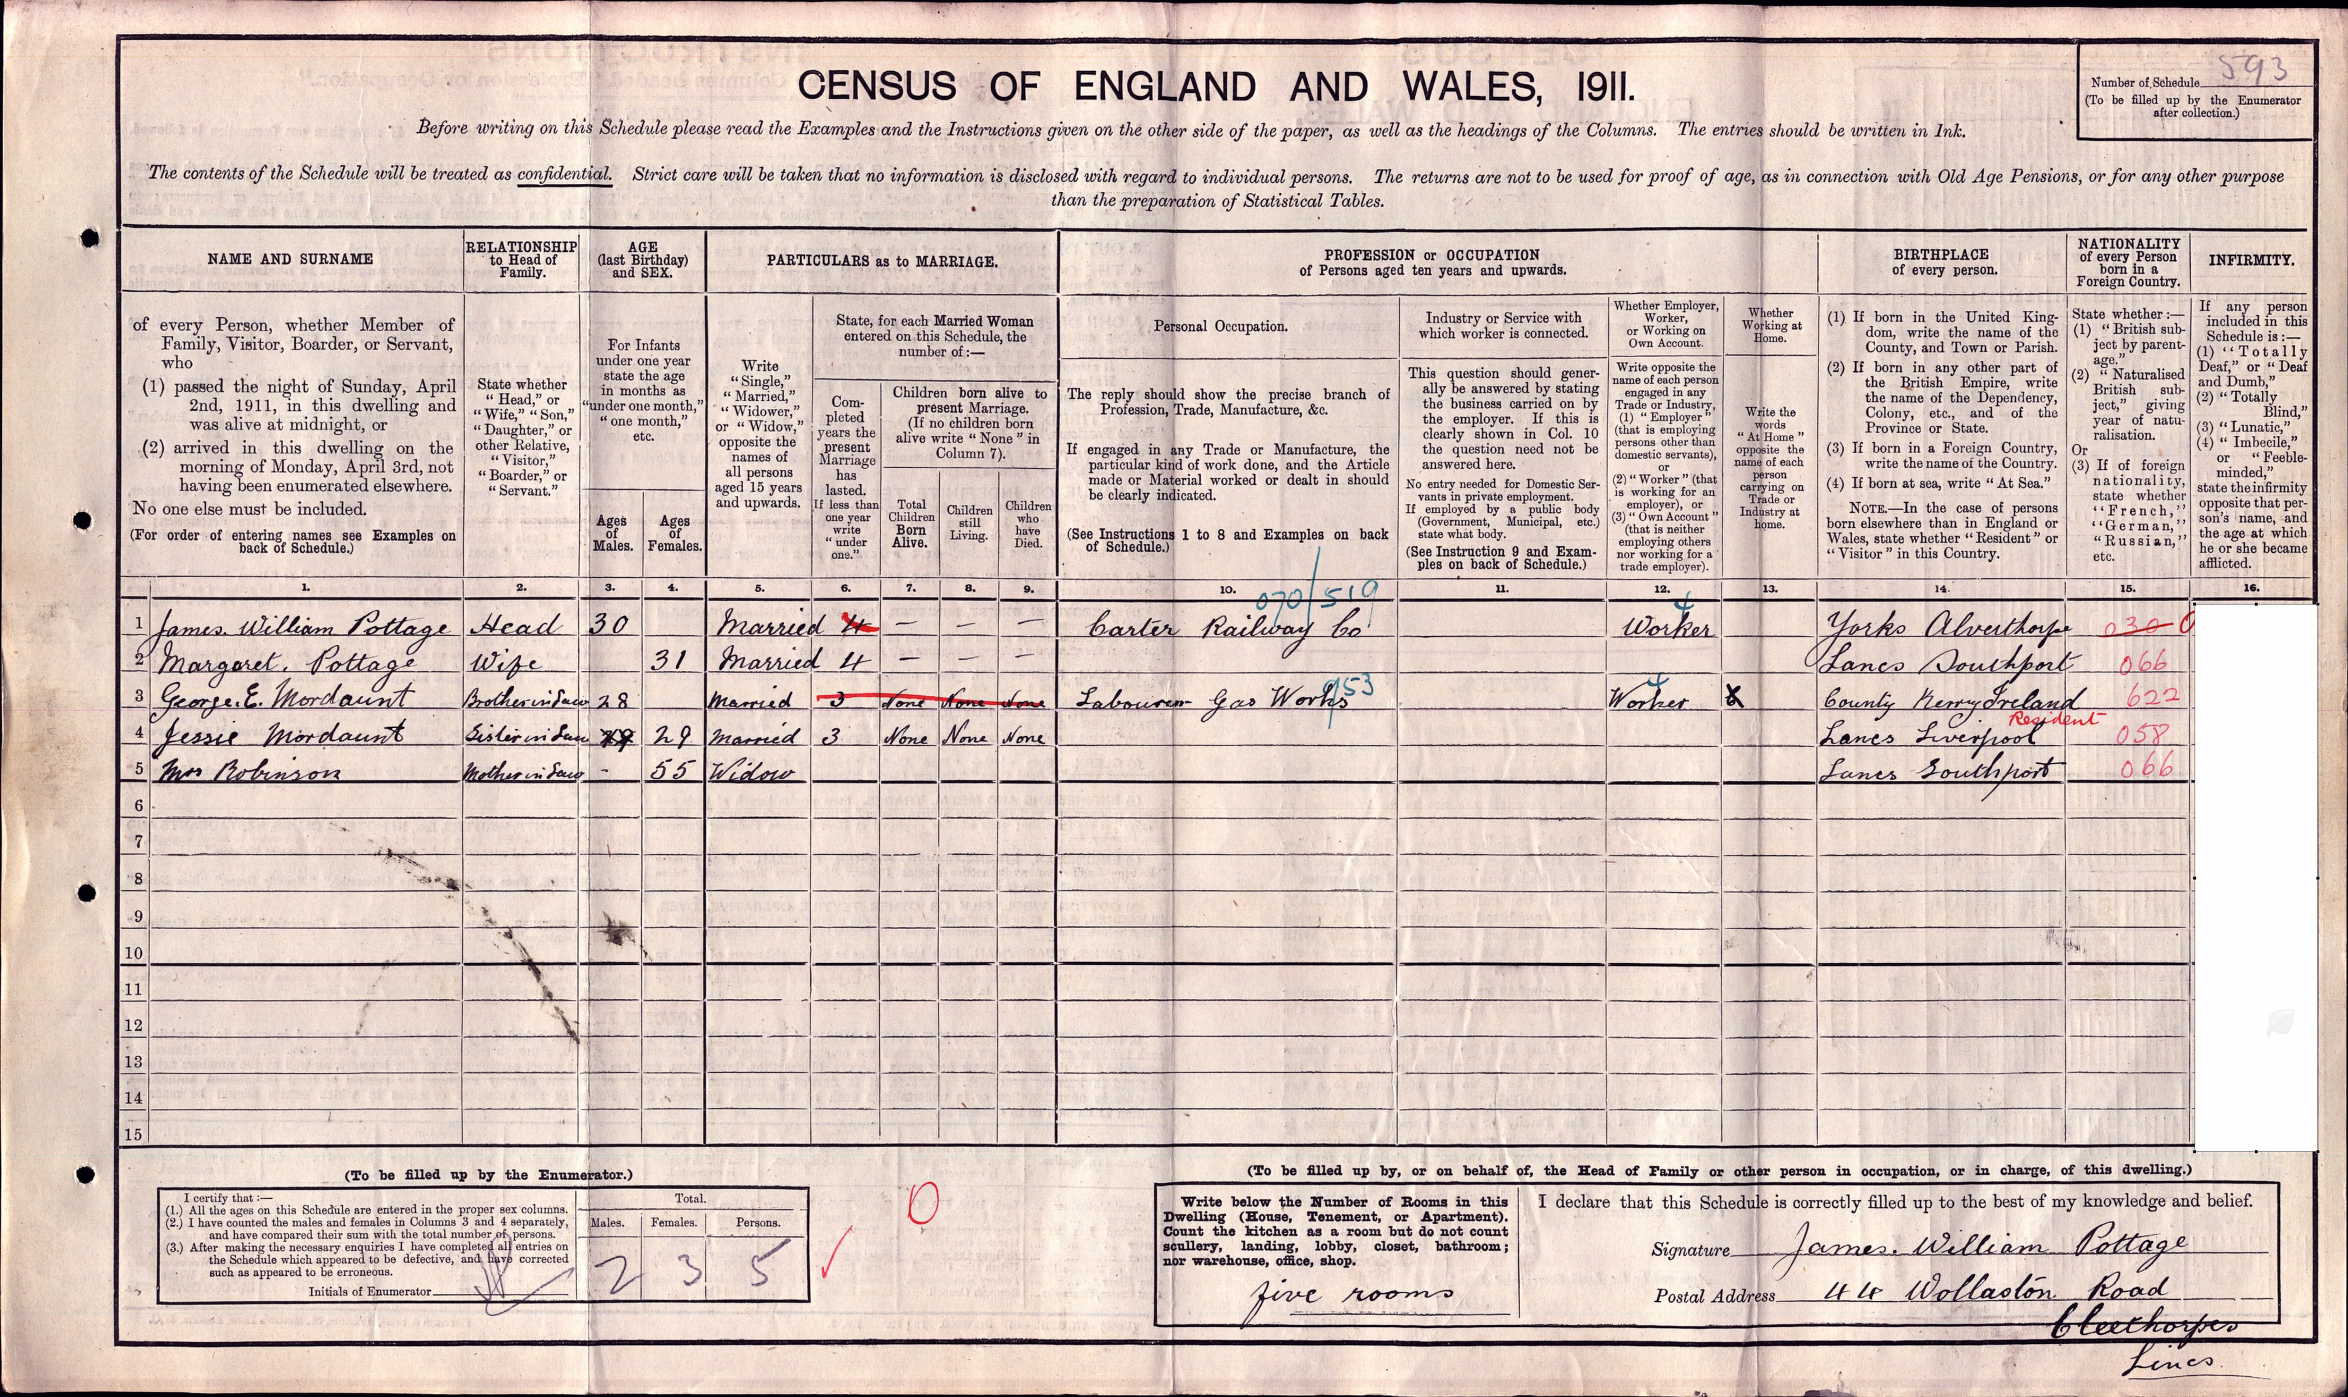 CENSUS OF ENGLAND AND WALES, 1911.
Number of Schedule 593
(To be filled up by the Enumerator
after collection.)
Before writing on this Schedule please read the Examples and the Instructions given on the other side of the paper, as well as the headings of the Columns. The entries should be written in Ink.
The contents of the Schedule will be treated as confidential. Strict care will be taken that no information is disclosed with regard to individual persons. The returns are not to be used for proof of age, as in connection with Old Age Pensions, or for any other purpose
than the preparation of Statistical Tables.
NAME AND SURNAME
of every Person, whether Member of
Family, Visitor, Boarder, or Servant,
who
(1) passed the night of Sunday, April
2nd, 1911, in this dwelling and
was alive at midnight, or
(2) arrived in this dwelling on the
morning of Monday, April 3rd, not
having been enumerated elsewhere.
No one else must be included.
(For order of entering names see Examples on
back of Schedule.)
RELATIONSHIP
to Head of
Family.
State whether
"Head," or
"Wife," "Son,"
"Daughter," or
other Relative,
"Visitor,"
"Boarder," or
"Servant."
AGE
(last Birthday)
and SEX.
For Infants
under one year
state the age
in months as
"under one month,"
"one month,"
etc.
Ages
of
Males.
Ages
of
Females.
PARTICULARS as to MARRIAGE.
Write
"Single,"
"Married,"
"Widower,"
or "Widow,"
opposite the
names of
all persons
aged 15 years
and upwards.
State, for each Married Woman
entered on this Schedule, the
number of:—
Com-
pleted
years the
present
Marriage
has
lasted.
If less than
one year
write
"under
one."
Children born alive to
present Marriage.
(If no children born
alive write "None" in
Column 7).
Total
Children
Born
Alive.
Children
still
Living.
Children
who
have
Died.
PROFESSION or OCCUPATION
of Persons aged ten years and upwards.
Personal Occupation.
The reply should show the precise branch of
Profession, Trade, Manufacture, &c.
If engaged in any Trade or Manufacture, the
particular kind of work done, and the Article
made or Material worked or dealt in should
be clearly indicated.
(See Instructions 1 to 8 and Examples on back
of Schedule.)
Industry or Service with
which worker is connected.
This question should gener-
ally be answered by stating
the business carried on by
the employer. If this is
clearly shown in Col. 10
the question need not be
answered here.
No entry needed for Domestic Ser-
vants in private employment.
If employed by a public body
(Government, Municipal, etc.)
state what body.
(See Instruction 9 and Exam-
ples on back of Schedule.)
Whether Employer,
Worker,
or Working on
Own Account.
Write opposite the
name of each person
engaged in any
Trade or Industry,
(1) "Employer"
(that is employing
persons other than
domestic servants),
or
(2) "Worker" (that
is working for an
employer), or
(3) "Own Account"
(that is neither
employing others
nor working for a
trade employer).
Whether
Working at
Home.
Write the
words
"At Home"
opposite the
name of each
person
carrying on
Trade or
Industry at
home.
BIRTHPLACE
of every person.
(1) If born in the United King-
dom, write the name of the
County, and Town or Parish.
(2) If born in any other part of
the British Empire, write
the name of the Dependency,
Colony, etc., and of the
Province or State.
(3) If born in a Foreign Country,
write the name of the Country.
(4) If born at sea, write "At Sea."
NOTE.—In the case of persons
born elsewhere than in England or
Wales, state whether "Resident" or
"Visitor" in this Country.
NATIONALITY
of every Person
born in a
Foreign Country.
State whether:—
(1) "British sub-
ject by parent-
age."
(2) "Naturalised
British sub-
ject," giving
year of natu-
ralisation.
Or
(3) If of foreign
nationality,
state whether
"French,"
"German,"
"Russian,"
etc.
INFIRMITY.
If any person
included in this
Schedule is:—
(1) "Totally
Deaf," or "Deaf
and Dumb,"
(2) "Totally
Blind,"
(3) "Lunatic,"
(4) "Imbecile,"
or "Feeble-
minded,"
state the infirmity
opposite that per-
son's name, and
the age at which
he or she became
afflicted.
1. 2. 3. 4. 5. 6. 7. 8. 9. 10. 11. 12. 13. 14. 15. 16.
070/519 4
1 James. William Pottage Head 30 Married 4 — — — Carter Railway Co Worker Yorks Alverthorpe 030 0
2 Margaret. Pottage Wife 31 Married 4 — — — Lancs Southport 066
953 4
3 George. E. Mordaunt Brother in Law 28 Married 3 None None None Labourer Gas Works Worker County Kerry Ireland 622
Resident
4 Jessie Mordaunt Sister in Law 29 29 Married 3 None None None Lancs Liverpool 058
5 Mrs Robinson Mother in Law - 55 Widow Lancs Southport 066
6
7
8
9
10
11
12
13
14
15
(To be filled up by the Enumerator.)
I certify that:—
(1.) All the ages on this Schedule are entered in the proper sex columns.
(2.) I have counted the males and females in Columns 3 and 4 separately,
and have compared their sum with the total number of persons.
(3.) After making the necessary enquiries I have completed all entries on
the Schedule which appeared to be defective, and have corrected
such as appeared to be erroneous.
Initials of Enumerator
Total.
Males. Females. Persons.
2 3 5
0
(To be filled up by, or on behalf of, the Head of Family or other person in occupation, or in charge, of this dwelling.)
Write below the Number of Rooms in this
Dwelling (House, Tenement, or Apartment).
Count the kitchen as a room but do not count
scullery, landing, lobby, closet, bathroom;
nor warehouse, office, shop.
five rooms
I declare that this Schedule is correctly filled up to the best of my knowledge and belief.
Signature James. William Pottage
Postal Address 44 Wollaston Road
Cleethorpes
Lincs.